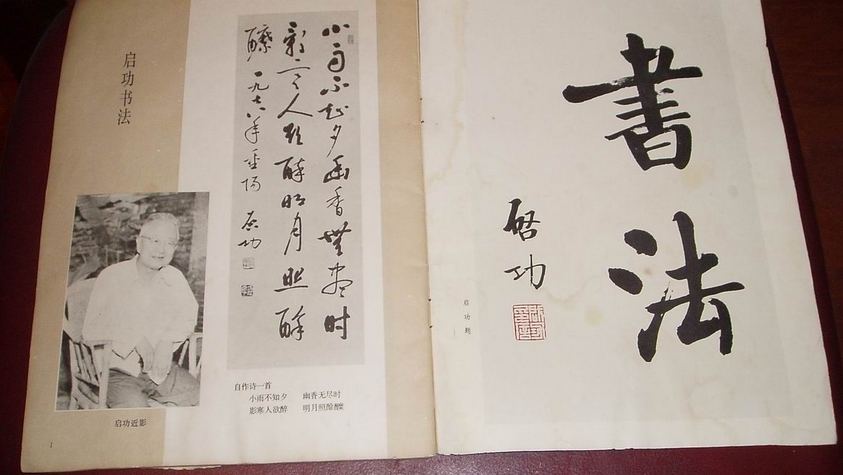 启功书法
小雨不知夕幽香無盡时
影寒人欲醉明月照酴
醿 一九七八年重陽 启功
自作诗一首
小雨不知夕 幽香无尽时
影寒人欲醉 明月照酴醿
启功近影
1
書法
啓功
启功题